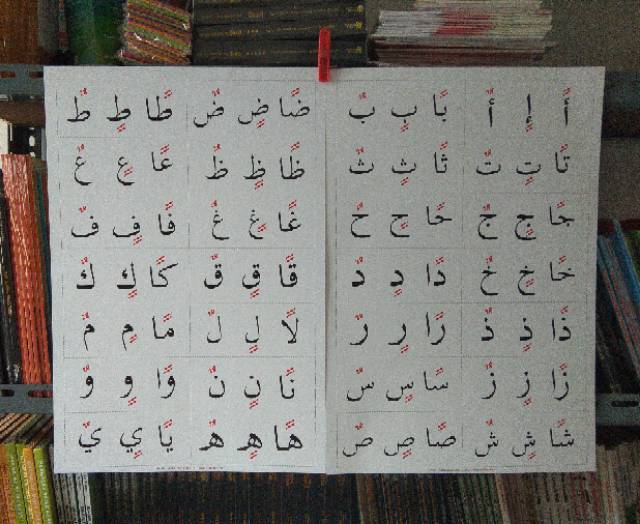 أً إٍ أٌ بًا بٍ بٌ
تًا تٍ تٌ ثًا ثٍ ثٌ
جًا جٍ جٌ حًا حٍ حٌ
خًا خٍ خٌ دًا دٍ دٌ
ذًا ذٍ ذٌ رًا رٍ رٌ
زًا زٍ زٌ سًا سٍ سٌ
شًا شٍ شٌ صًا صٍ صٌ
ضًا ضٍ ضٌ طًا طٍ طٌ
ظًا ظٍ ظٌ عًا عٍ عٌ
غًا غٍ غٌ فًا فٍ فٌ
قًا قٍ قٌ كًا كٍ كٌ
لًا لٍ لٌ مًا مٍ مٌ
نًا نٍ نٌ وًا وٍ وٌ
هًا هٍ هٌ يًا يٍ يٌ